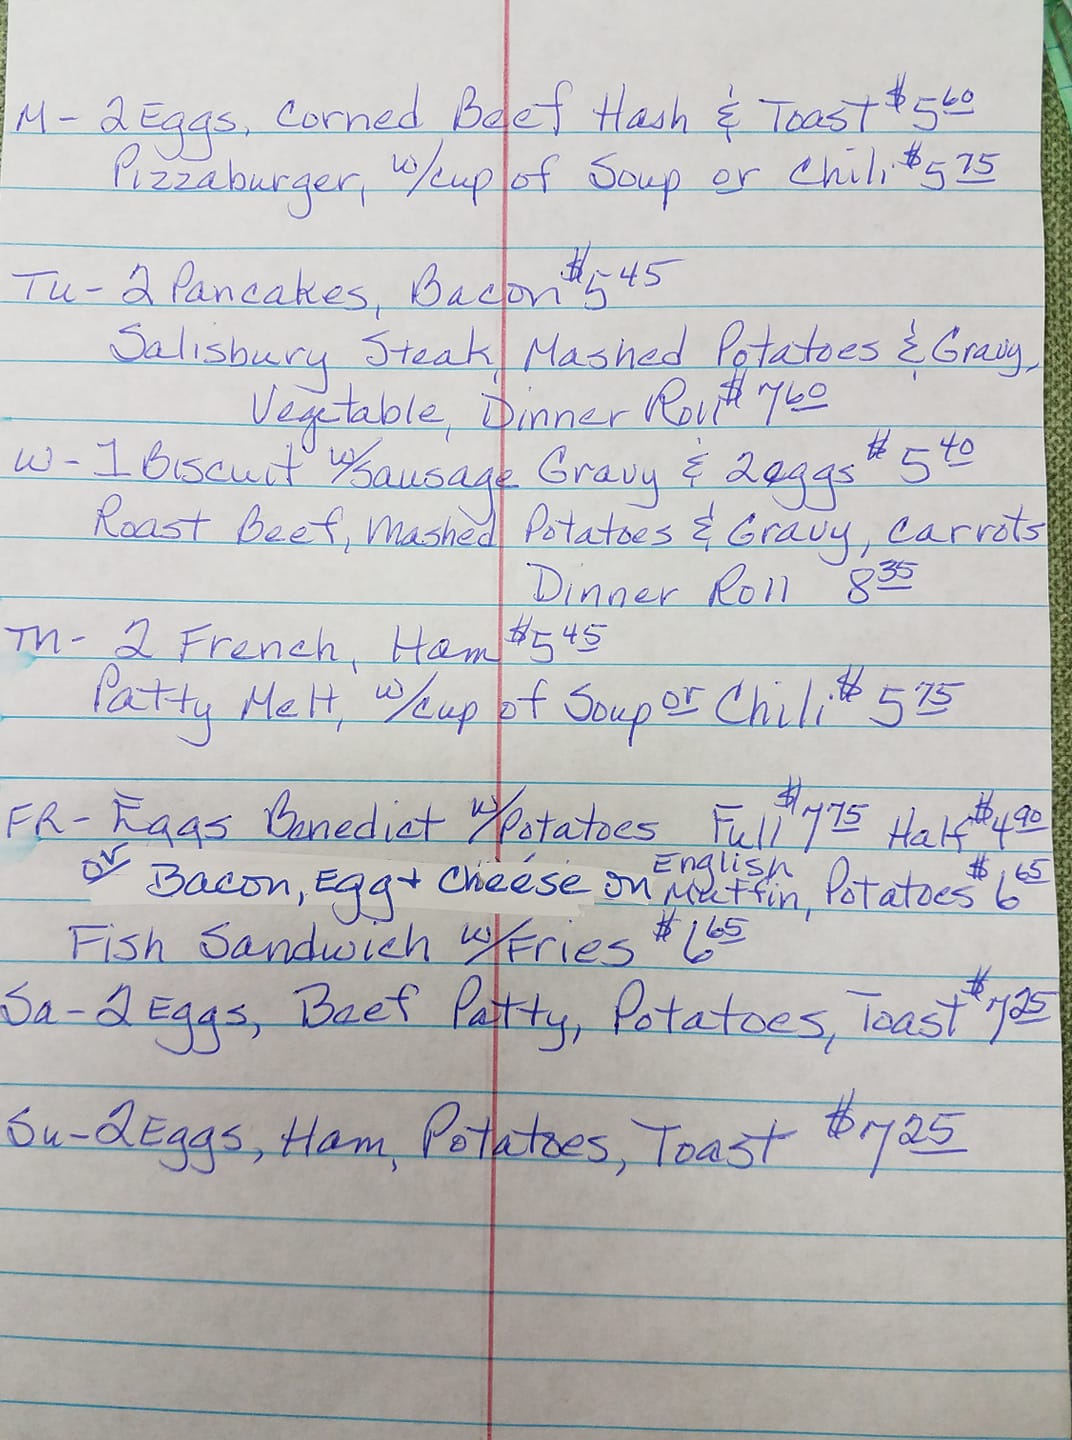 M- 2 Eggs, Corned Beef Hash & Toast $5 60
Pizzaburger, w/cup of Soup or Chili $5 75
Tu- 2 Pancakes, Bacon $5 45
Salisbury Steak, Mashed Potatoes & Gravy,
Vegetable, Dinner Roll $7 60
W- 1 Biscuit w/Sausage Gravy & 2 eggs $5 40
Roast Beef, Mashed Potatoes & Gravy, Carrots
Dinner Roll 8 35
Th- 2 French, Ham $5 45
Patty Melt, w/cup of Soup or Chili $5 75
FR- Eggs Benedict w/Potatoes Full $7 75 Half $4 90
or Bacon, Egg + Cheese on English Muffin, Potatoes $6 65
Fish Sandwich w/Fries $6 65
Sa- 2 Eggs, Beef Patty, Potatoes, Toast $7 25
Su- 2 Eggs, Ham, Potatoes, Toast $7 25